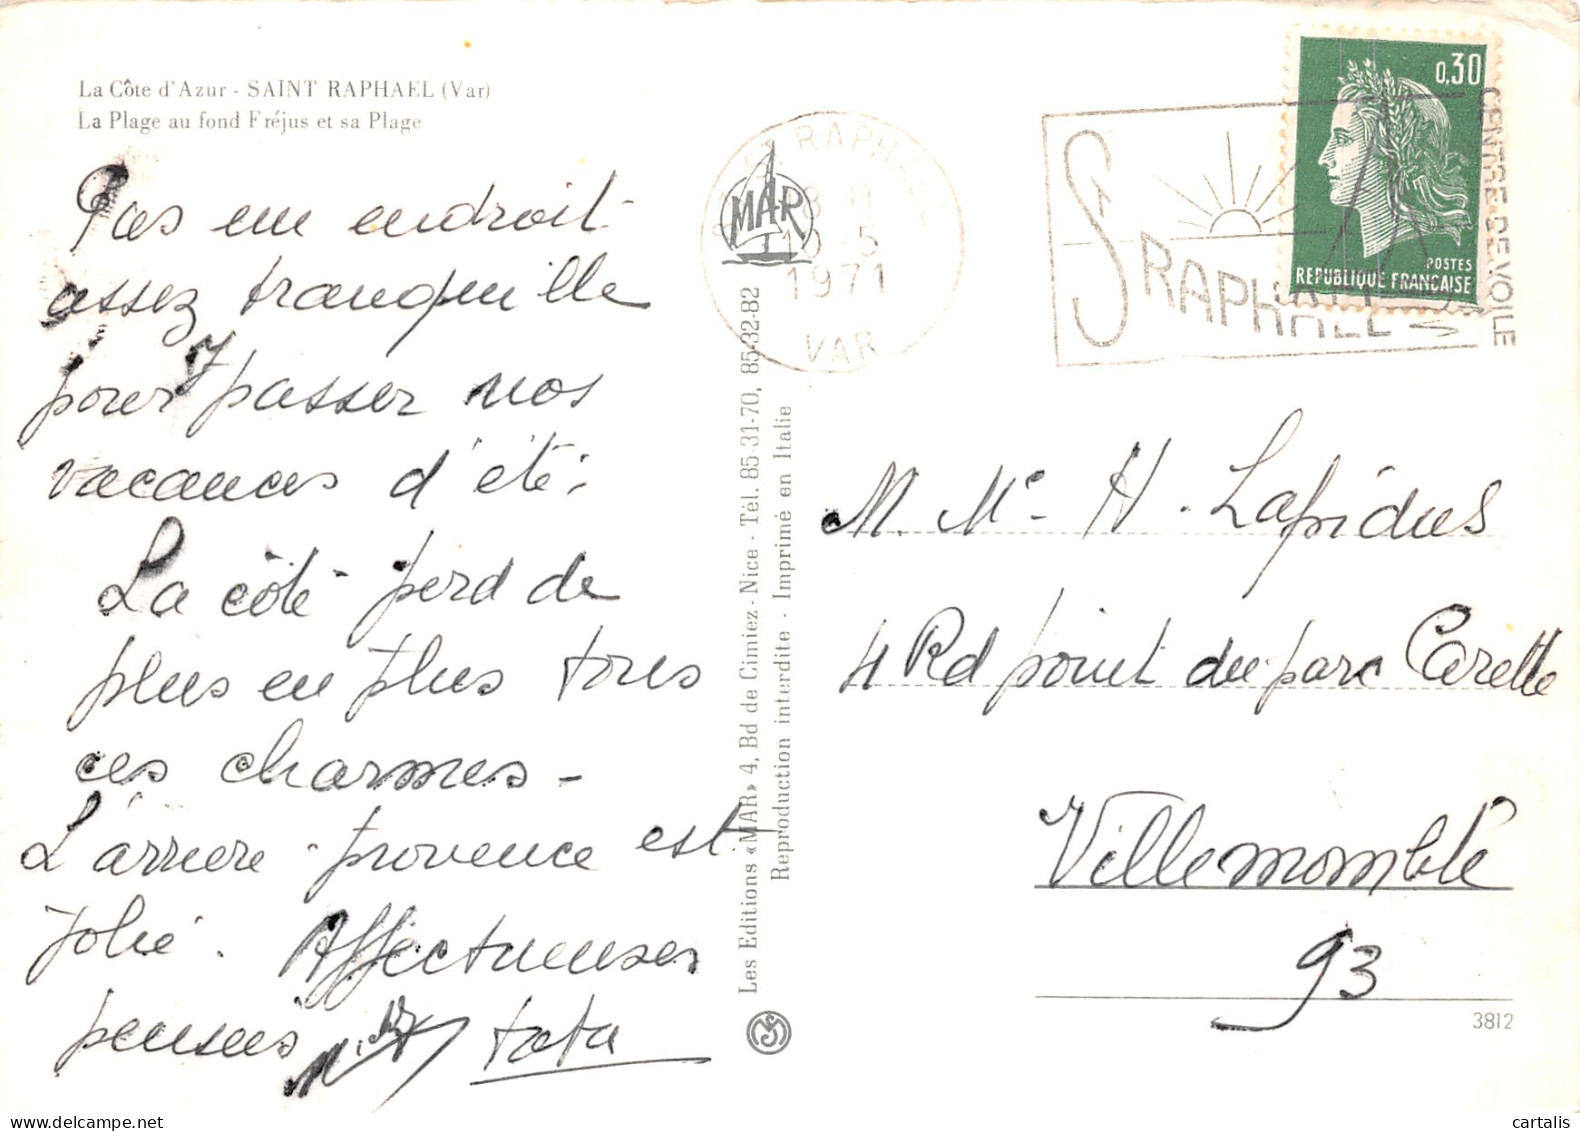 La Côte d'Azur - SAINT RAPHAEL (Var)
La Plage au fond Fréjus et sa Plage
Pas un endroit
assez tranquille
pour y passer nos
vacances d'été;
La côte perd de
plus en plus tous
ces charmes -
L'arrière-provence est
jolie. Affectueuses
pensées
tata
Les Editions «MAR» 4, Bd de Cimiez - Nice - Tél. 85-31-70, 85-32-82
Reproduction interdite - Imprimé en Italie
MAR
RAPHAEL
10-5
1971
VAR
ST RAPHAEL
CENTRE DE VOILE
0,30
POSTES
REPUBLIQUE FRANCAISE
M. Me - H. Lapidus
4 Rd point du parc Carette
Villemomble
93
3812
cartalis
www.delcampe.net